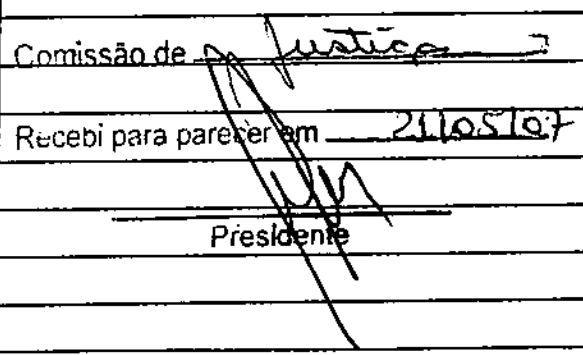 Comissão de Justiça
Recebi para parecer em 21/05/07
Presidente